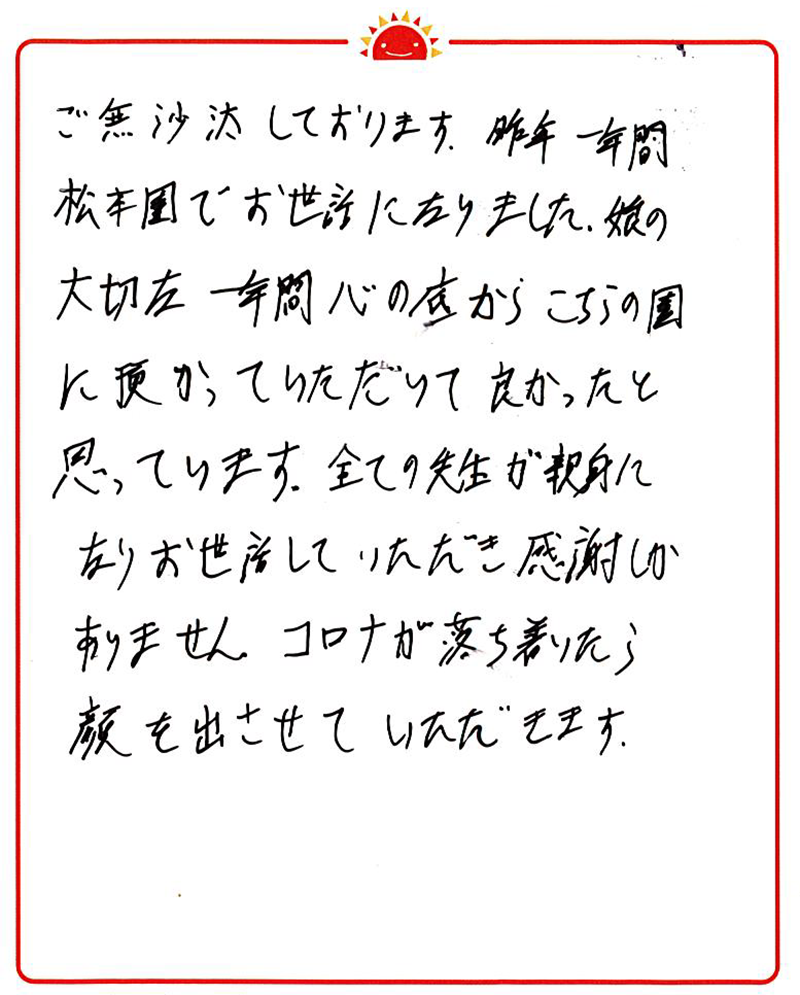 ご無沙汰しております。昨年一年間
松本園でお世話になりました。娘の
大切な一年間心の底からこちらの園
に預かっていただいて良かったと
思っています。全ての先生が親身に
なりお世話していただき感謝しか
ありません。コロナが落ち着いたら
顔を出させていただきます。